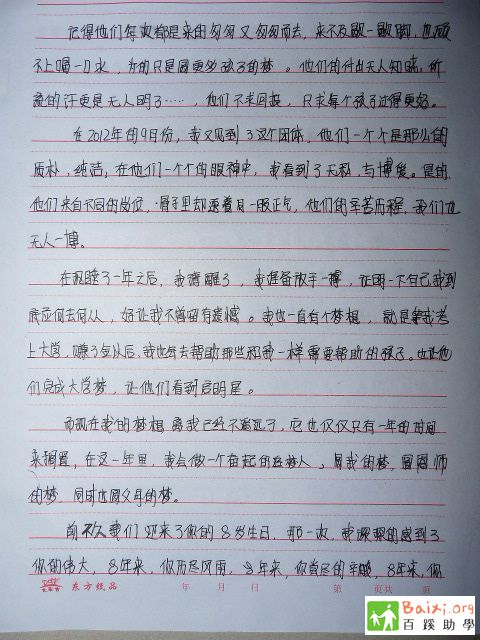 记得他们每次都是来的匆匆又匆匆而去，来不及歇一歇脚，也顾
不上喝一口水，为的只是圆更多孩子的梦。他们的付出无人知晓，所
流的汗更是无人明了……，他们不求回报，只求每个孩子过得更好。
在2012年的9月份，我又见到了这个团体，他们一个个是那么的
质朴，纯洁，在他们一个个的眼神中，我看到了无私，与博爱。是的，
他们来自不同的岗位，骨子里却透着一股正气，他们的辛苦历程，我们也
无人一博。
在沉睡了一年之后，我清醒了，我准备放手一搏，证明一下自己我到
底应何去何从，好让我不曾留有遗憾。我也一直有个梦想，就是等我考
上大学，赚了钱以后，我也好去帮助那些和我一样需要帮助的孩子。也让他
们完成大学梦，让他们看到启明星。
而现在我的梦想离我已经不遥远了，它也仅仅只有一年的时间
来搁置，在这一年里，我会做一个奋起的追梦人，圆我的梦，圆恩师
的梦，同时也圆父母的梦。
前不久我们迎来了你的8岁生日，那一次，我深深的感到了
你的伟大，8年来，你历尽风雨，8年来，你尝尽的辛酸，8年来，你
东方纸品 年 月 日 第 页共 页
Baixi.org
百蹊助學